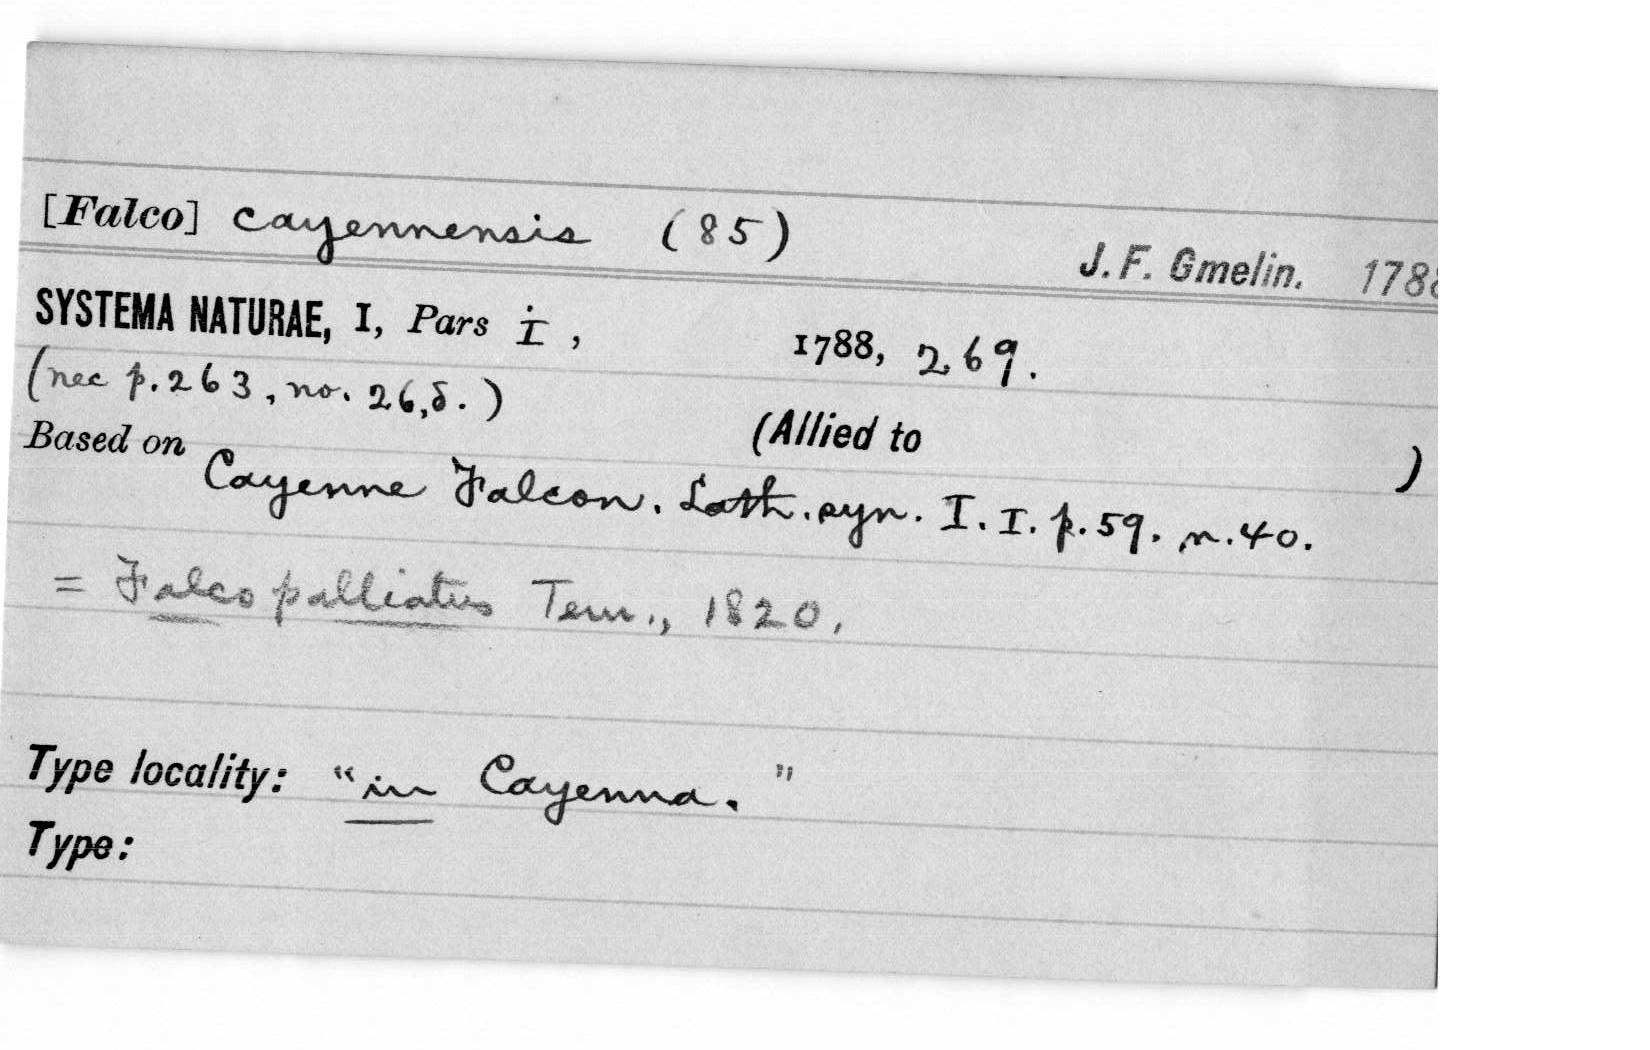 [Falco] cayennensis (85) J. F. Gmelin. 1788
SYSTEMA NATURAE, I, Pars I, 1788, 269.
(nec p. 263, no. 26, δ.)
Based on (Allied to )
Cayenne Falcon. Lath. syn. I. I. p. 59. n. 40.
= Falco palliatus Tem., 1820.
Type locality: "in Cayenna."
Type: